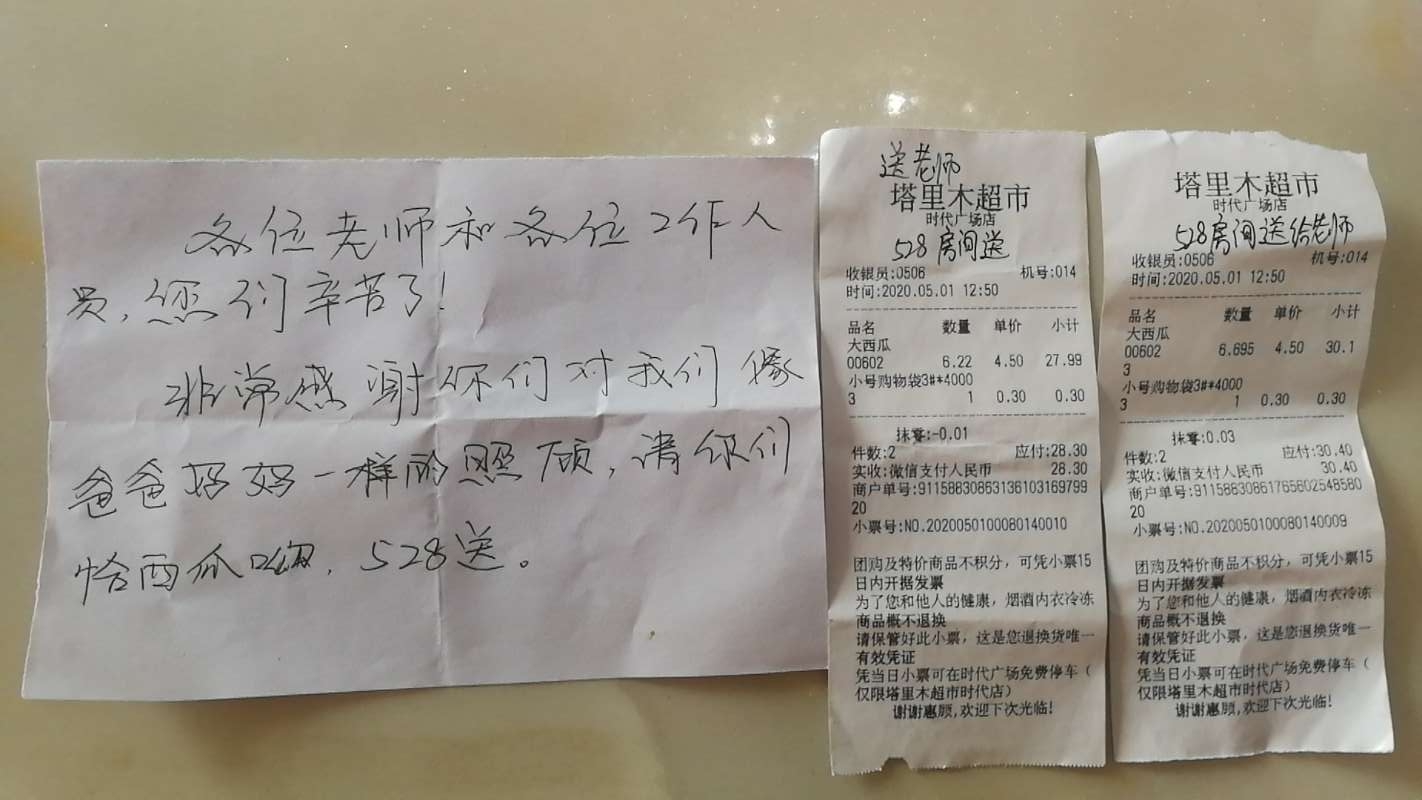 各位老师和各位工作人
员,您们辛苦了!
非常感谢你们对我们像
爸爸妈妈一样的照顾,请你们
恰西瓜呦,528送。
送老师
塔里木超市
时代广场店
528房间送
收银员:0506 机号:014
时间:2020.05.01 12:50
品名 数量 单价 小计
大西瓜
00602 6.22 4.50 27.99
小号购物袋3#*4000
3 1 0.30 0.30
抹零:-0.01
件数:2 应付:28.30
实收:微信支付人民币 28.30
商户单号:91158830863136103169799
20
小票号:NO.2020050100080140010
团购及特价商品不积分,可凭小票15
日内开据发票
为了您和他人的健康,烟酒内衣冷冻
商品概不退换
请保管好此小票,这是您退换货唯一
有效凭证
凭当日小票可在时代广场免费停车(
仅限塔里木超市时代店)
谢谢惠顾,欢迎下次光临!
塔里木超市
时代广场店
528房间送给老师
收银员:0506 机号:014
时间:2020.05.01 12:50
品名 数量 单价 小计
大西瓜
00602 6.695 4.50 30.1
3
小号购物袋3#*4000
3 1 0.30 0.30
抹零:0.03
件数:2 应付:30.40
实收:微信支付人民币 30.40
商户单号:91158830861765802548580
20
小票号:NO.2020050100080140009
团购及特价商品不积分,可凭小票15
日内开据发票
为了您和他人的健康,烟酒内衣冷冻
商品概不退换
请保管好此小票,这是您退换货唯一
有效凭证
凭当日小票可在时代广场免费停车(
仅限塔里木超市时代店)
谢谢惠顾,欢迎下次光临!